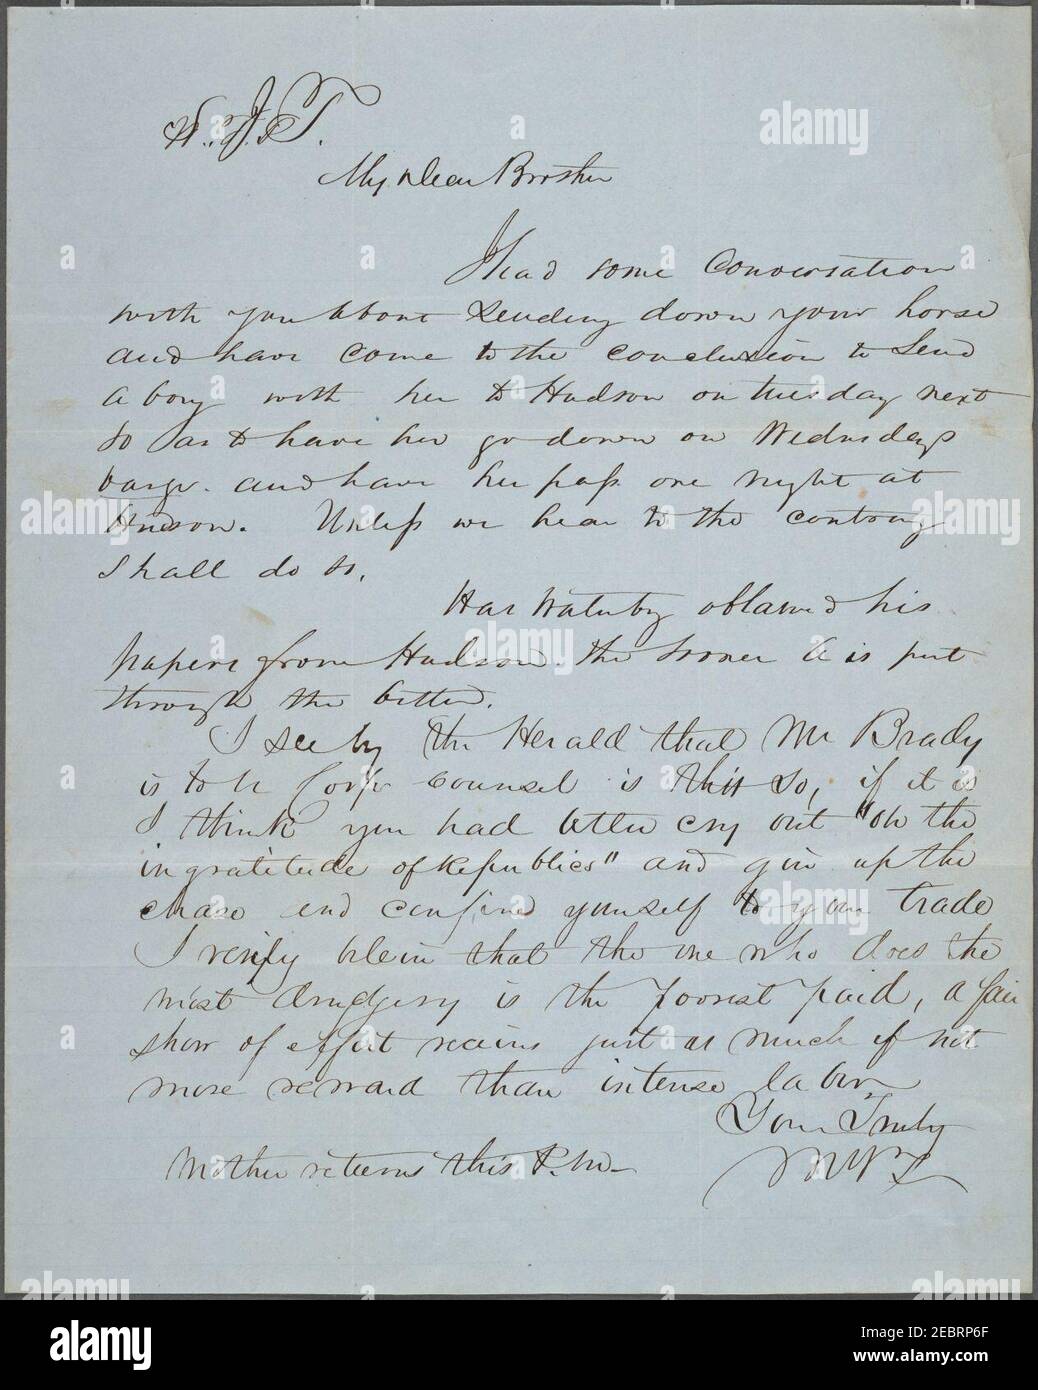 My Dear Brother
I had some Conversation
with you about Sending down your horse
and have come to the conclusion to Send
a boy with her to Hudson on tuesday next
So as to have her go down on Wednesdays
barge. and have her pass one night at
Hudson. Unless we hear to the contrary
Shall do so.
Has Waterby obtained his
papers from Hudson. the sooner it is put
through the better.
I see by the Herald that Mr Brady
is to be Corp counsel is this so, if it is
I think you had better cry out "oh the
ingratitude of Republics" and give up the
chase and confine yourself to your trade
I verily believe that the one who does the
most drudgery is the poorest paid, a fair
show of effort receives just as much if not
more reward than intense labor
Yours Truly
Mother returns this P.M.
alamy
Image ID: 2EBRP6F
www.alamy.com